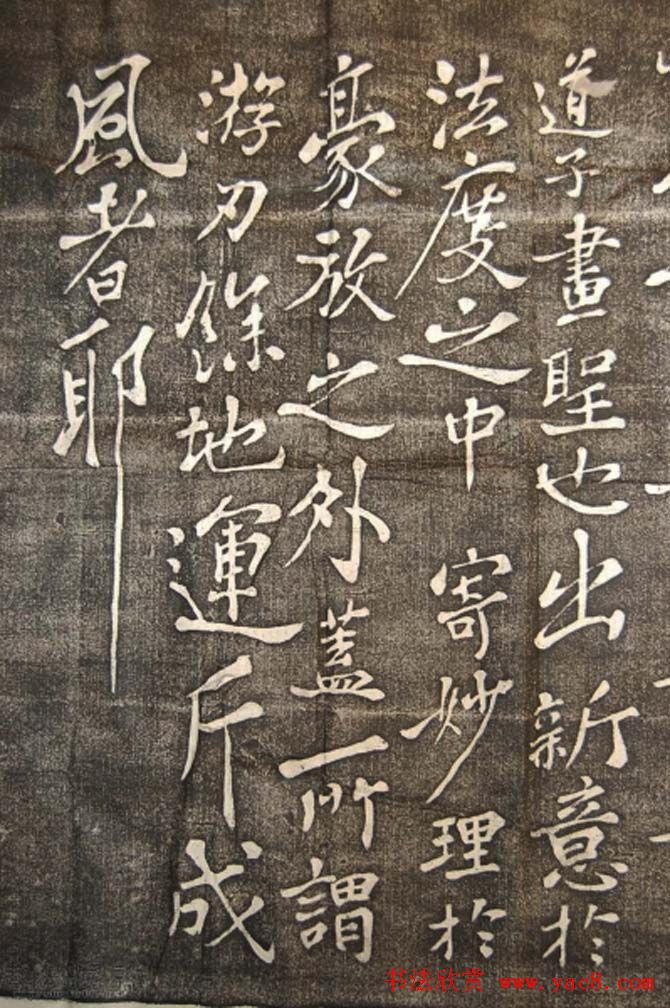 道子畫聖也出新意於
法度之中寄妙理於
豪放之外蓋所謂
游刃餘地運斤成
風者耶
书法欣赏 www.yac8.com